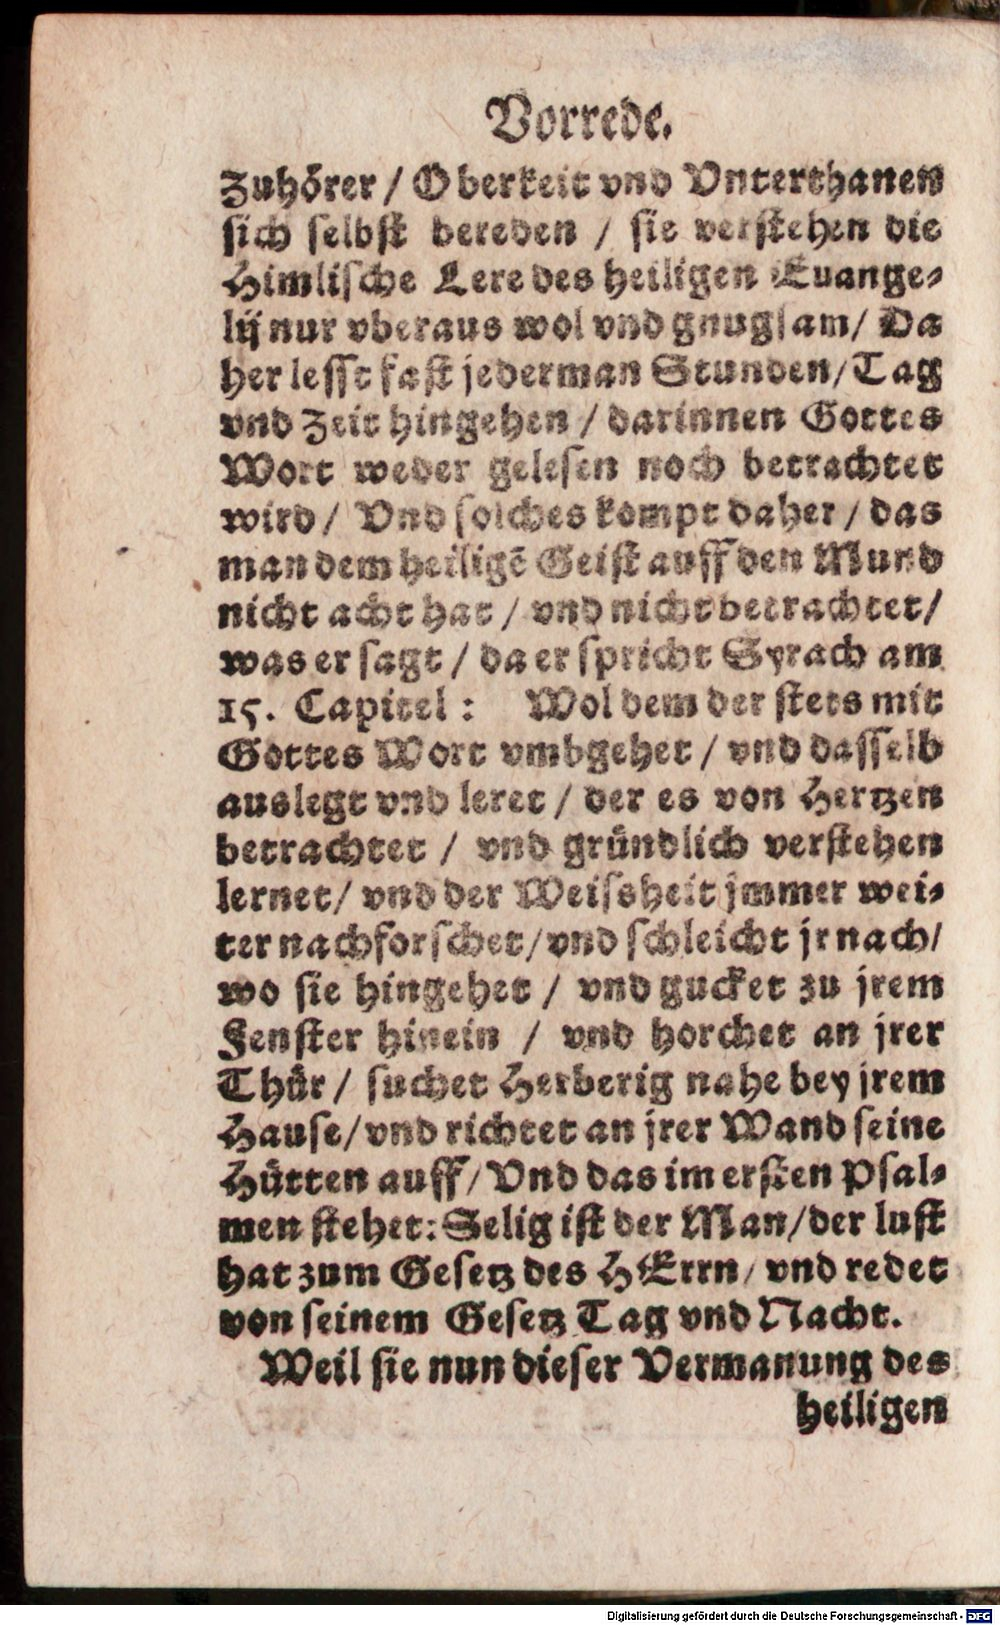 Vorrede.
Zuhörer / Oberkeit vnd Vnterthanen
sich selbst bereden / sie verstehen die
Himlische Lere des heiligen Euange-
lij nur vberaus wol vnd gnugsam / Da
her lesst fast jederman Stunden / Tag
vnd Zeit hingehen / darinnen Gottes
Wort weder gelesen noch betrachtet
wird / Vnd solches kompt daher / das
man dem heiligē Geist auff den Mund
nicht acht hat / vnd nicht betrachtet /
was er sagt / da er spricht Syrach am
15. Capitel : Wol dem der stets mit
Gottes Wort vmbgehet / vnd dasselb
auslegt vnd leret / der es von Hertzen
betrachtet / vnd gründlich verstehen
lernet / vnd der Weissheit jmmer wei-
ter nachforschet / vnd schleicht jr nach /
wo sie hingehet / vnd gucket zu jrem
Fenster hinein / vnd horchet an jrer
Thür / suchet Herberig nahe bey jrem
Hause / vnd richtet an jrer Wand seine
Hütten auff / Vnd das im ersten Psal-
men stehet : Selig ist der Man / der lust
hat zum Gesetz des HErrn / vnd redet
von seinem Gesetz Tag vnd Nacht.
Weil sie nun dieser Vermanung des
heiligen
Digitalisierung gefördert durch die Deutsche Forschungsgemeinschaft - DFG